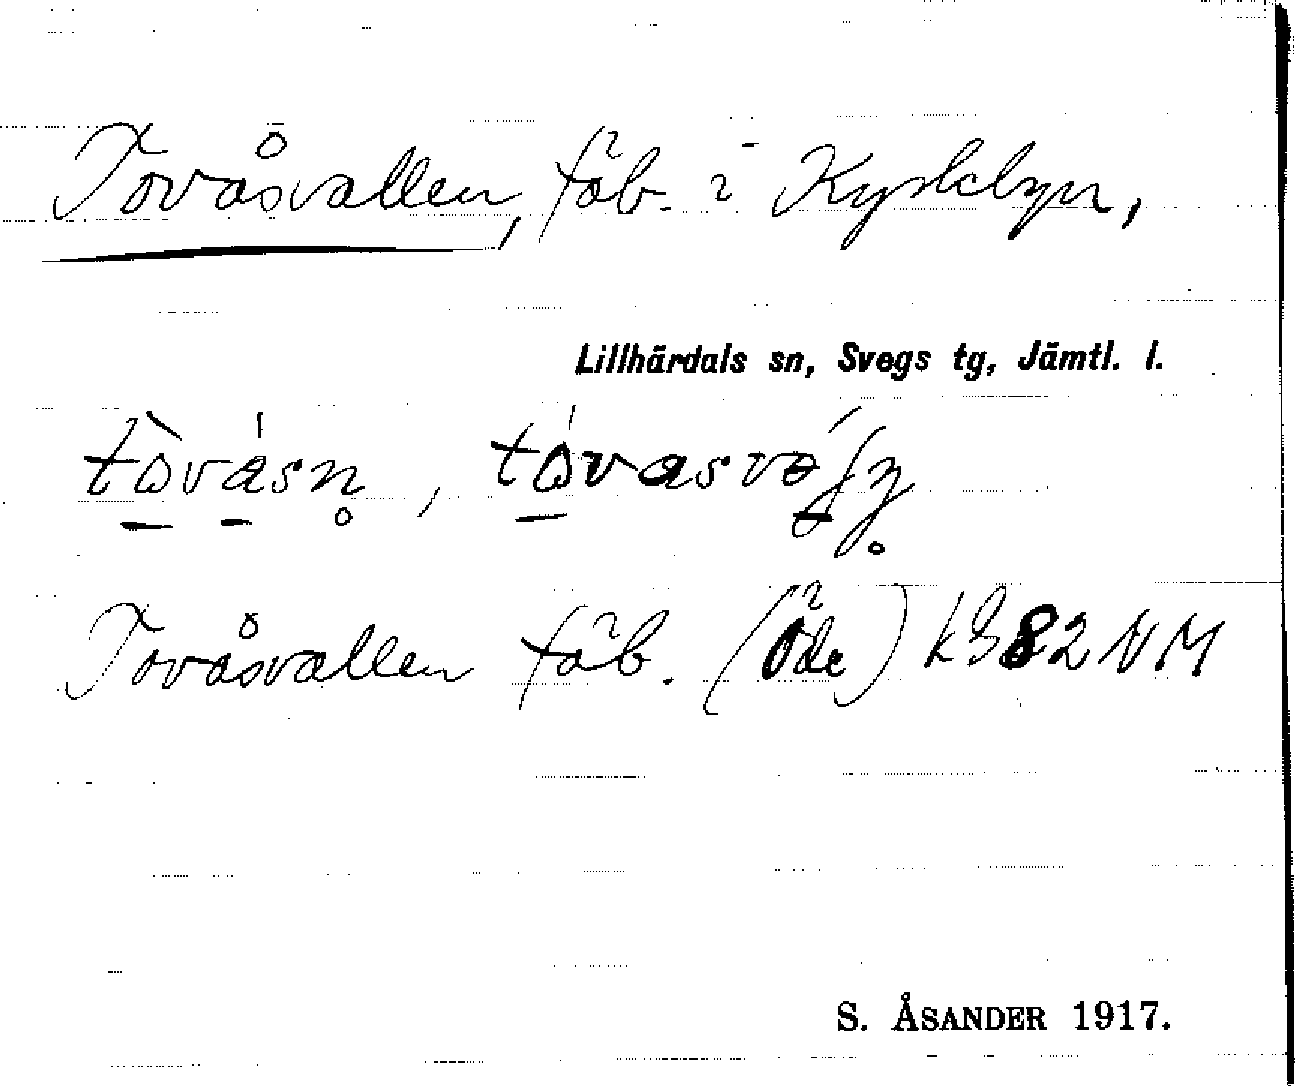 Tovåsvallen, fäb. i Kyrkbyn,
Lillhärdals sn, Svegs tg, Jämtl. l.
Tovåsvallen fäb. (Öde) k982 NM
S. ÅSANDER 1917.